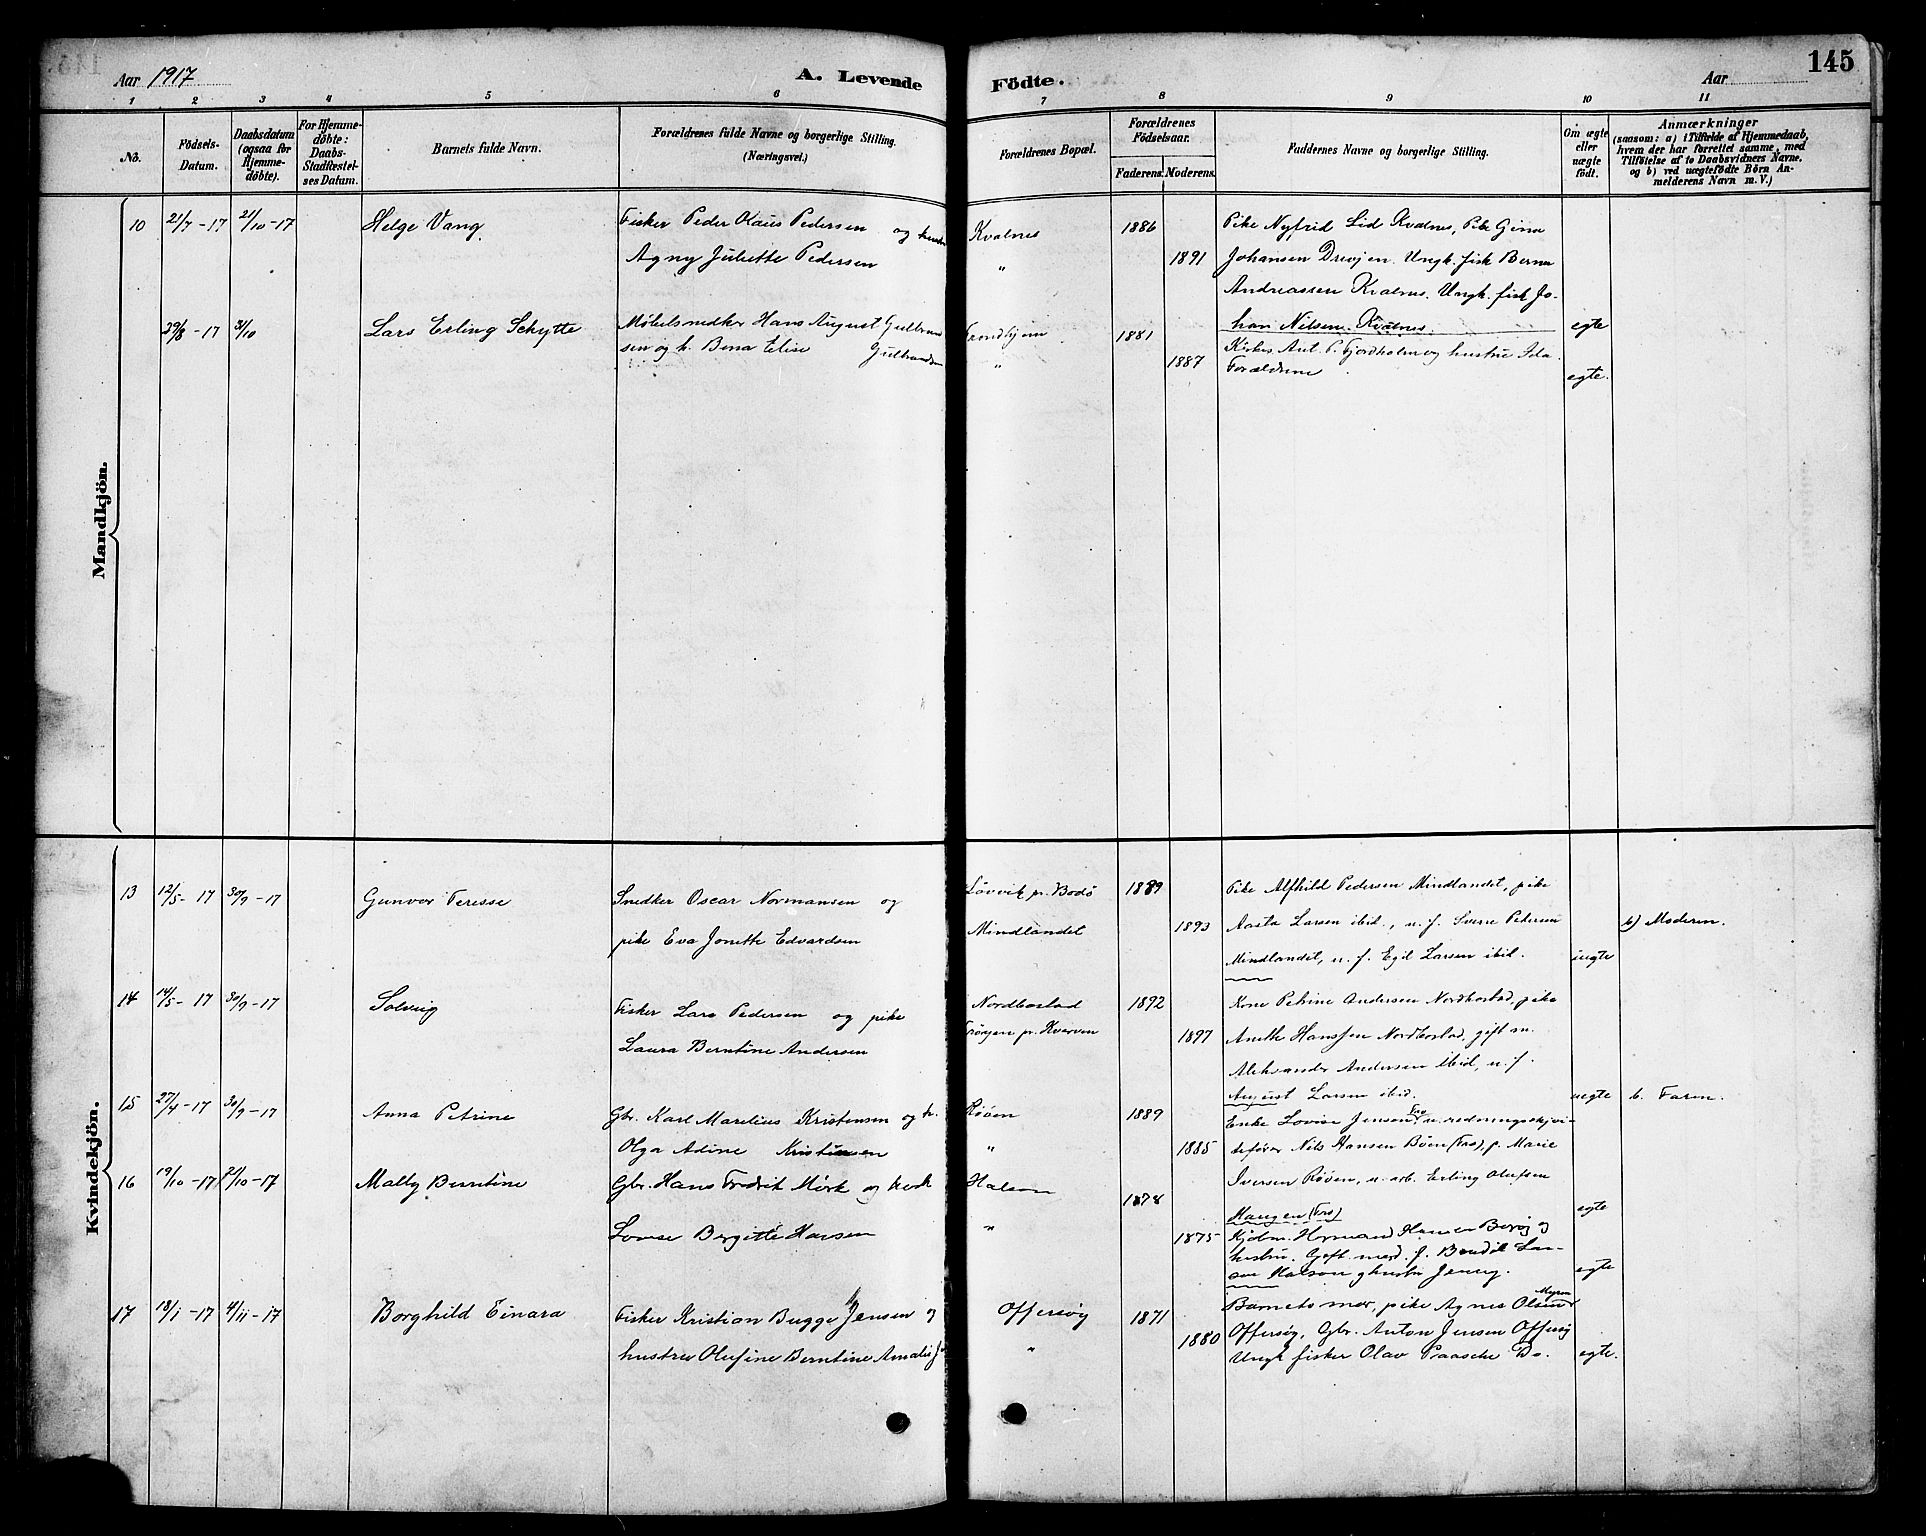 Aar 1917
A. Levende
Födte.
Aar
145
1 2 3 4 5 6 7 8 9 10 11
No.
Födsels-
Datum.
Daabsdatum
(ogsaa for
Hjemme-
döbte).
For Hjemme-
döbte:
Daabs-
Stadfæstel-
ses Datum.
Barnets fulde Navn.
Forældrenes fulde Navne og borgerlige Stilling.
(Næringsvei.)
Forældrenes Bopæl.
Forældrenes
Födselsaar.
Faderens. Moderens.
Faddernes Navne og borgerlige Stilling.
Om ægte
eller
uægte
födt.
Anmærkninger
(saasom: a) i Tilfælde af Hjemmedaab,
hvem der har forrettet samme, med
Tilföielse af to Daabsvidners Navne.
og b) ved uægtefödte Börn An-
melderens Navn m. V.)
Mandkjön.
10 21/7-17 21/10-17 Helge Vang Fisker Peder Olaus Pedersen og hustru Kvalnes 1886 Pike Nyfrid Lid Kvalnes, Pike Gina
Agny Juliette Pedersen " 1891 Johansen Drevjen. Ungk. fisk Berna
Andreassen Kvalnes. Ungk. fisk Jo-
han Nilsen Kvalnes. egte
29/8-17 3/10 Lars Erling Schytte Møbelsnedker Hans August Gulbrand
sen og h. Bena Elise Gulbrandsen Trondhjem 1881
" 1887 Kirkes Ant. P. Fjordholm og hustru Ida.
Forældrene egte.
Kvindekjön.
13 12/5-17 30/9-17 Gunvor Teresse Snedker Oscar Normansen og Løvvik pr. Bodö 1889 Pike Alfhild Pedersen Mindlandet, pike
pike Eva Jonette Edvardsen Mindlandet 1893 Aasta Larsen ibid., u. f. Sverre Pedersen b) Moderen.
Mindlandet, u. f. Egil Larsen ibid. uegte
14 14/5-17 30/9-17 Solveig Fisker Lars Pedersen og pike Nordbostad 1892 Kone Petrine Andersen Nordbostad, pike
Laura Berntine Andersen 1897 Anette Hanssen Nordbostad, gift m.
Aleksander Andersen ibid, u. f.
August Larsen ibid. uegte b. Faren.
15 27/4-17 30/9-17 Anna Petrine Gbr. Karl Marelius Kristensen og h. Røen 1889 Enke Lovise Jensen Tro
Olga Adine Kristensen " 1885 Nils Hansen Böen (Tro), p. Marie
Iversen Røen, u. arb. Erling Olufsen
Haugen (Tro) egte
16 19/10-17 21/10-17 Mally Berntine Gbr. Hans Fredrik Mörk og Halsøn 1878
Lovise Birgitte Hansen " 1875 Kjøbm. Herman Hansen Berøy og
hustru. Gift med. f. Bendik Lar-
sen Halsøn og hustru Jenny. egte
17 18/1-17 4/11-17 Borghild Einara Fisker Kristian Bugge Jensen og Offersøy 1871 Barnets mor, pike Agnes Olsen Myren
hustru Olufine Berntine Amalie J " 1880 Offersøy, Gbr. Anton Jensen Offersøy
Ungk fisker Olav Paasche Do. egte.